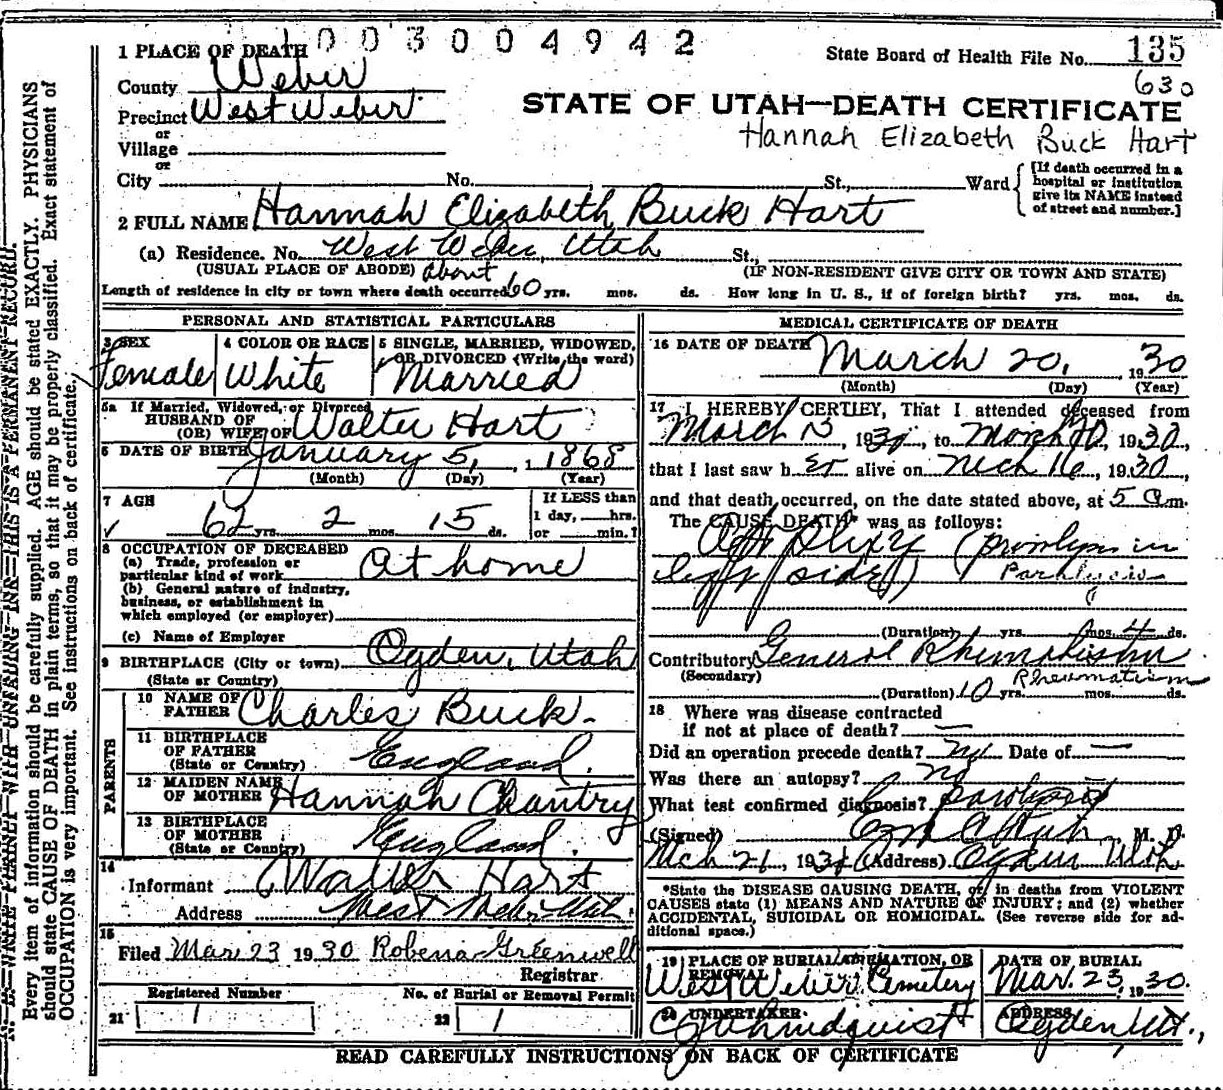 1003004942
1 PLACE OF DEATH
State Board of Health File No. 135
630
County Weber
Precinct West Weber
or
Village
or
City No. St., Ward
STATE OF UTAH—DEATH CERTIFICATE
Hannah Elizabeth Buck Hart
[If death occurred in a
hospital or institution
give its NAME instead
of street and number.]
2 FULL NAME Hannah Elizabeth Buck Hart
(a) Residence. No. West Weber, Utah St.,
(USUAL PLACE OF ABODE) about (IF NON-RESIDENT GIVE CITY OR TOWN AND STATE)
Length of residence in city or town where death occurred 60 yrs. mos. ds. How long in U. S., if of foreign birth? yrs. mos. ds.
PERSONAL AND STATISTICAL PARTICULARS
3 SEX
Female
4 COLOR OR RACE
White
5 SINGLE, MARRIED, WIDOWED,
OR DIVORCED (Write the word)
Married
5a If Married, Widowed, or Divorced
HUSBAND OF
(OR) WIFE OF Walter Hart
6 DATE OF BIRTH January 5, 1868
(Month) (Day) (Year)
7 AGE
62 yrs. 2 mos. 15 ds.
If LESS than
1 day, hrs.
or min.?
8 OCCUPATION OF DECEASED
(a) Trade, profession or
particular kind of work At home
(b) General nature of industry,
business, or establishment in
which employed (or employer)
(c) Name of Employer
9 BIRTHPLACE (City or town) Ogden, Utah
(State or Country)
PARENTS
10 NAME OF
FATHER Charles Buck
11 BIRTHPLACE
OF FATHER
(State or Country) England.
12 MAIDEN NAME
OF MOTHER Hannah Chantry
13 BIRTHPLACE
OF MOTHER
(State or Country) England.
14
Informant Walter Hart
Address West Weber Utah
15
Filed Mar 23 1930 Robena Greenwell
Registrar
Registered Number
21 1
No. of Burial or Removal Permit
22 1
MEDICAL CERTIFICATE OF DEATH
16 DATE OF DEATH March 20, 1930
(Month) (Day) (Year)
17 I HEREBY CERTIFY, That I attended deceased from
March 1930, to March 1930,
that I last saw her alive on Mch 16, 1930,
and that death occurred, on the date stated above, at 5 a m.
The CAUSE DEATH* was as follows:
in
left side)
Paralysis
(Duration) yrs. mos. 4 ds.
Contributory General Rhumatism
(Secondary)
Rheumatism
(Duration) 10 yrs. mos. ds.
18 Where was disease contracted
if not at place of death? —
Did an operation precede death? no Date of —
Was there an autopsy? no
What test confirmed diagnosis?
(Signed) M. D.
Mch 21, 193 (Address) Ogden Utah
*State the DISEASE CAUSING DEATH, or, in deaths from VIOLENT
CAUSES state (1) MEANS AND NATURE OF INJURY; and (2) whether
ACCIDENTAL, SUICIDAL OR HOMICIDAL. (See reverse side for ad-
ditional space.)
19 PLACE OF BURIAL, CREMATION, OR
REMOVAL
West Weber Cemetery
DATE OF BURIAL
Mar. 23, 1930.
20 UNDERTAKER
Lindquist
ADDRESS
Ogden, Ut.,
READ CAREFULLY INSTRUCTIONS ON BACK OF CERTIFICATE
N. B.—WRITE PLAINLY WITH UNFADING INK—THIS IS A PERMANENT RECORD.
Every item of information should be carefully supplied. AGE should be stated EXACTLY. PHYSICIANS
should state CAUSE OF DEATH in plain terms, so that it may be properly classified. Exact statement of
OCCUPATION is very important. See instructions on back of certificate.